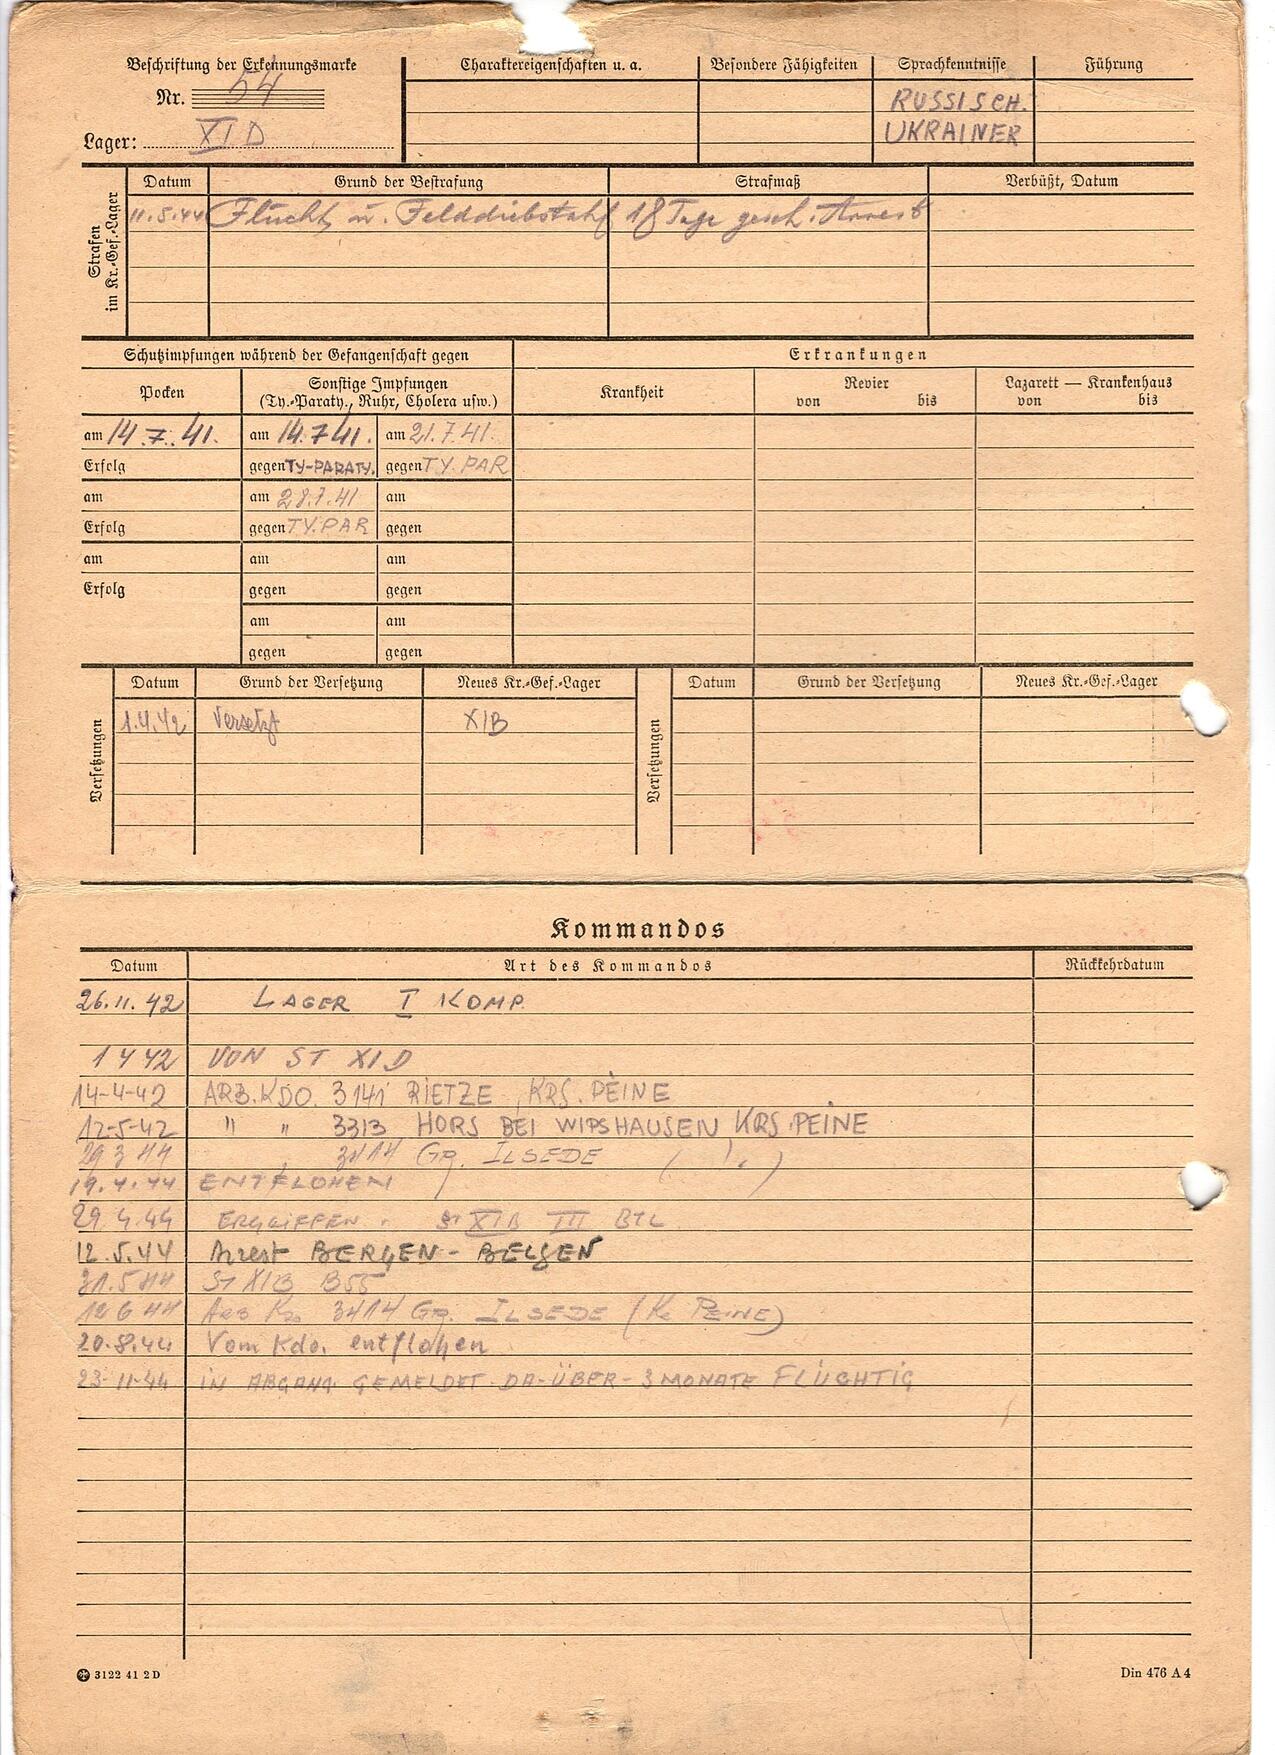 Beschriftung der Erkennungsmarke
Nr. 54
Lager: XI D
Charaktereigenschaften u. a.
Besondere Fähigkeiten
Sprachkenntnisse
RUSSISCH.
UKRAINER
Führung
Strafen im Kr.-Gef.-Lager
Datum Grund der Bestrafung Strafmaß Verbüßt, Datum
11.5.44 Flucht u. Felddiebstahl 18 Tage gesch. Arrest
Schutzimpfungen während der Gefangenschaft gegen
Erkrankungen
Pocken
Sonstige Impfungen
(Ty.-Paraty., Ruhr, Cholera usw.)
Krankheit
Revier
von bis
Lazarett — Krankenhaus
von bis
am 14.7.41. am 14.7.41. am 21.7.41.
Erfolg gegen TY-PARATY. gegen TY.PAR
am am 28.7.41 am
Erfolg gegen TY.PAR gegen
am am am
Erfolg gegen gegen
am am
gegen gegen
Versetzungen
Datum Grund der Versetzung Neues Kr.-Gef.-Lager
1.4.42 Versetzt XIB
Versetzungen
Datum Grund der Versetzung Neues Kr.-Gef.-Lager
Kommandos
Datum Art des Kommandos Rückkehrdatum
26.11.42 LAGER I KOMP.
1 4 42 VON ST XI D
14-4-42 ARB.KDO. 3141 RIETZE, KRS. PEINE
12-5-42 " " 3313 HORS BEI WIPSHAUSEN KRS.PEINE
29 3 44 3414 GR. ILSEDE ( " )
19.4.44 ENTFLOHEN
29.4.44 ERGRIFFEN. ST XIB III BTL
12.5.44 Arrest BERGEN-BELSEN
31.5.44 ST XIB B55
12 6 44 ARB KDO 3414 GR. ILSEDE (KR PEINE)
20.8.44 Vom Kdo. entflohen
23-11-44 IN ABGANG GEMELDET-DA-ÜBER-3 MONATE FLÜCHTIG
3122 41 2 D
Din 476 A 4